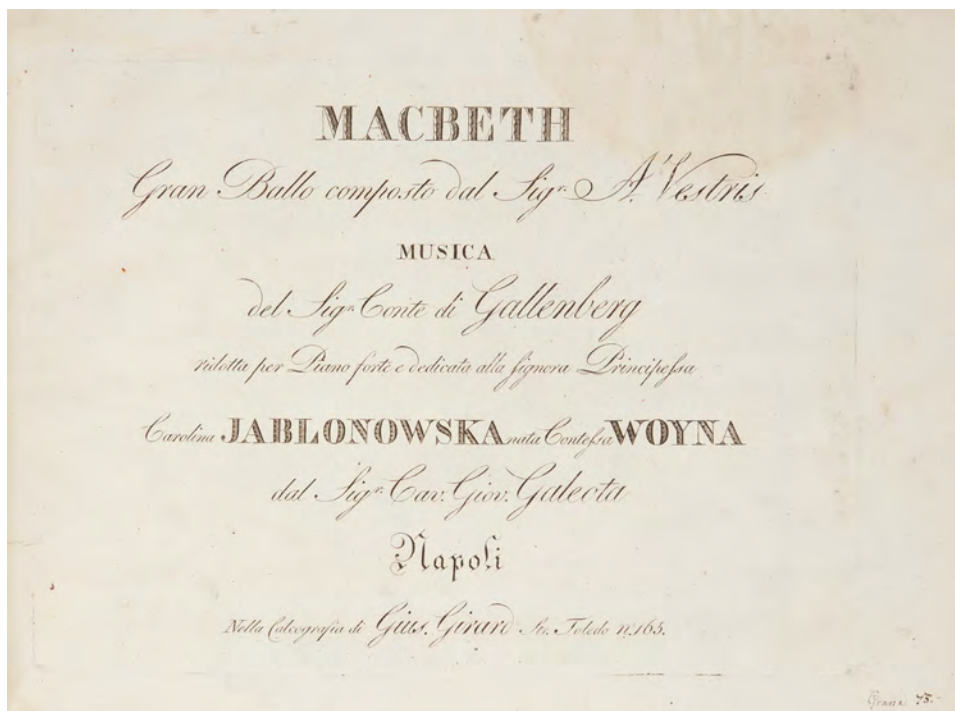 MACBETH
Gran Ballo composto dal Sigr. A. Vestris
MUSICA
del Sigr. Conte di Gallenberg
ridotta per Piano forte e dedicata alla signora Principessa
Carolina JABLONOWSKA nata Contessa WOYNA
dal Sigr. Cav. Giov. Galeota
Napoli
Nella Calcografia di Gius. Girard Str. Toledo n.º 163.
75.-